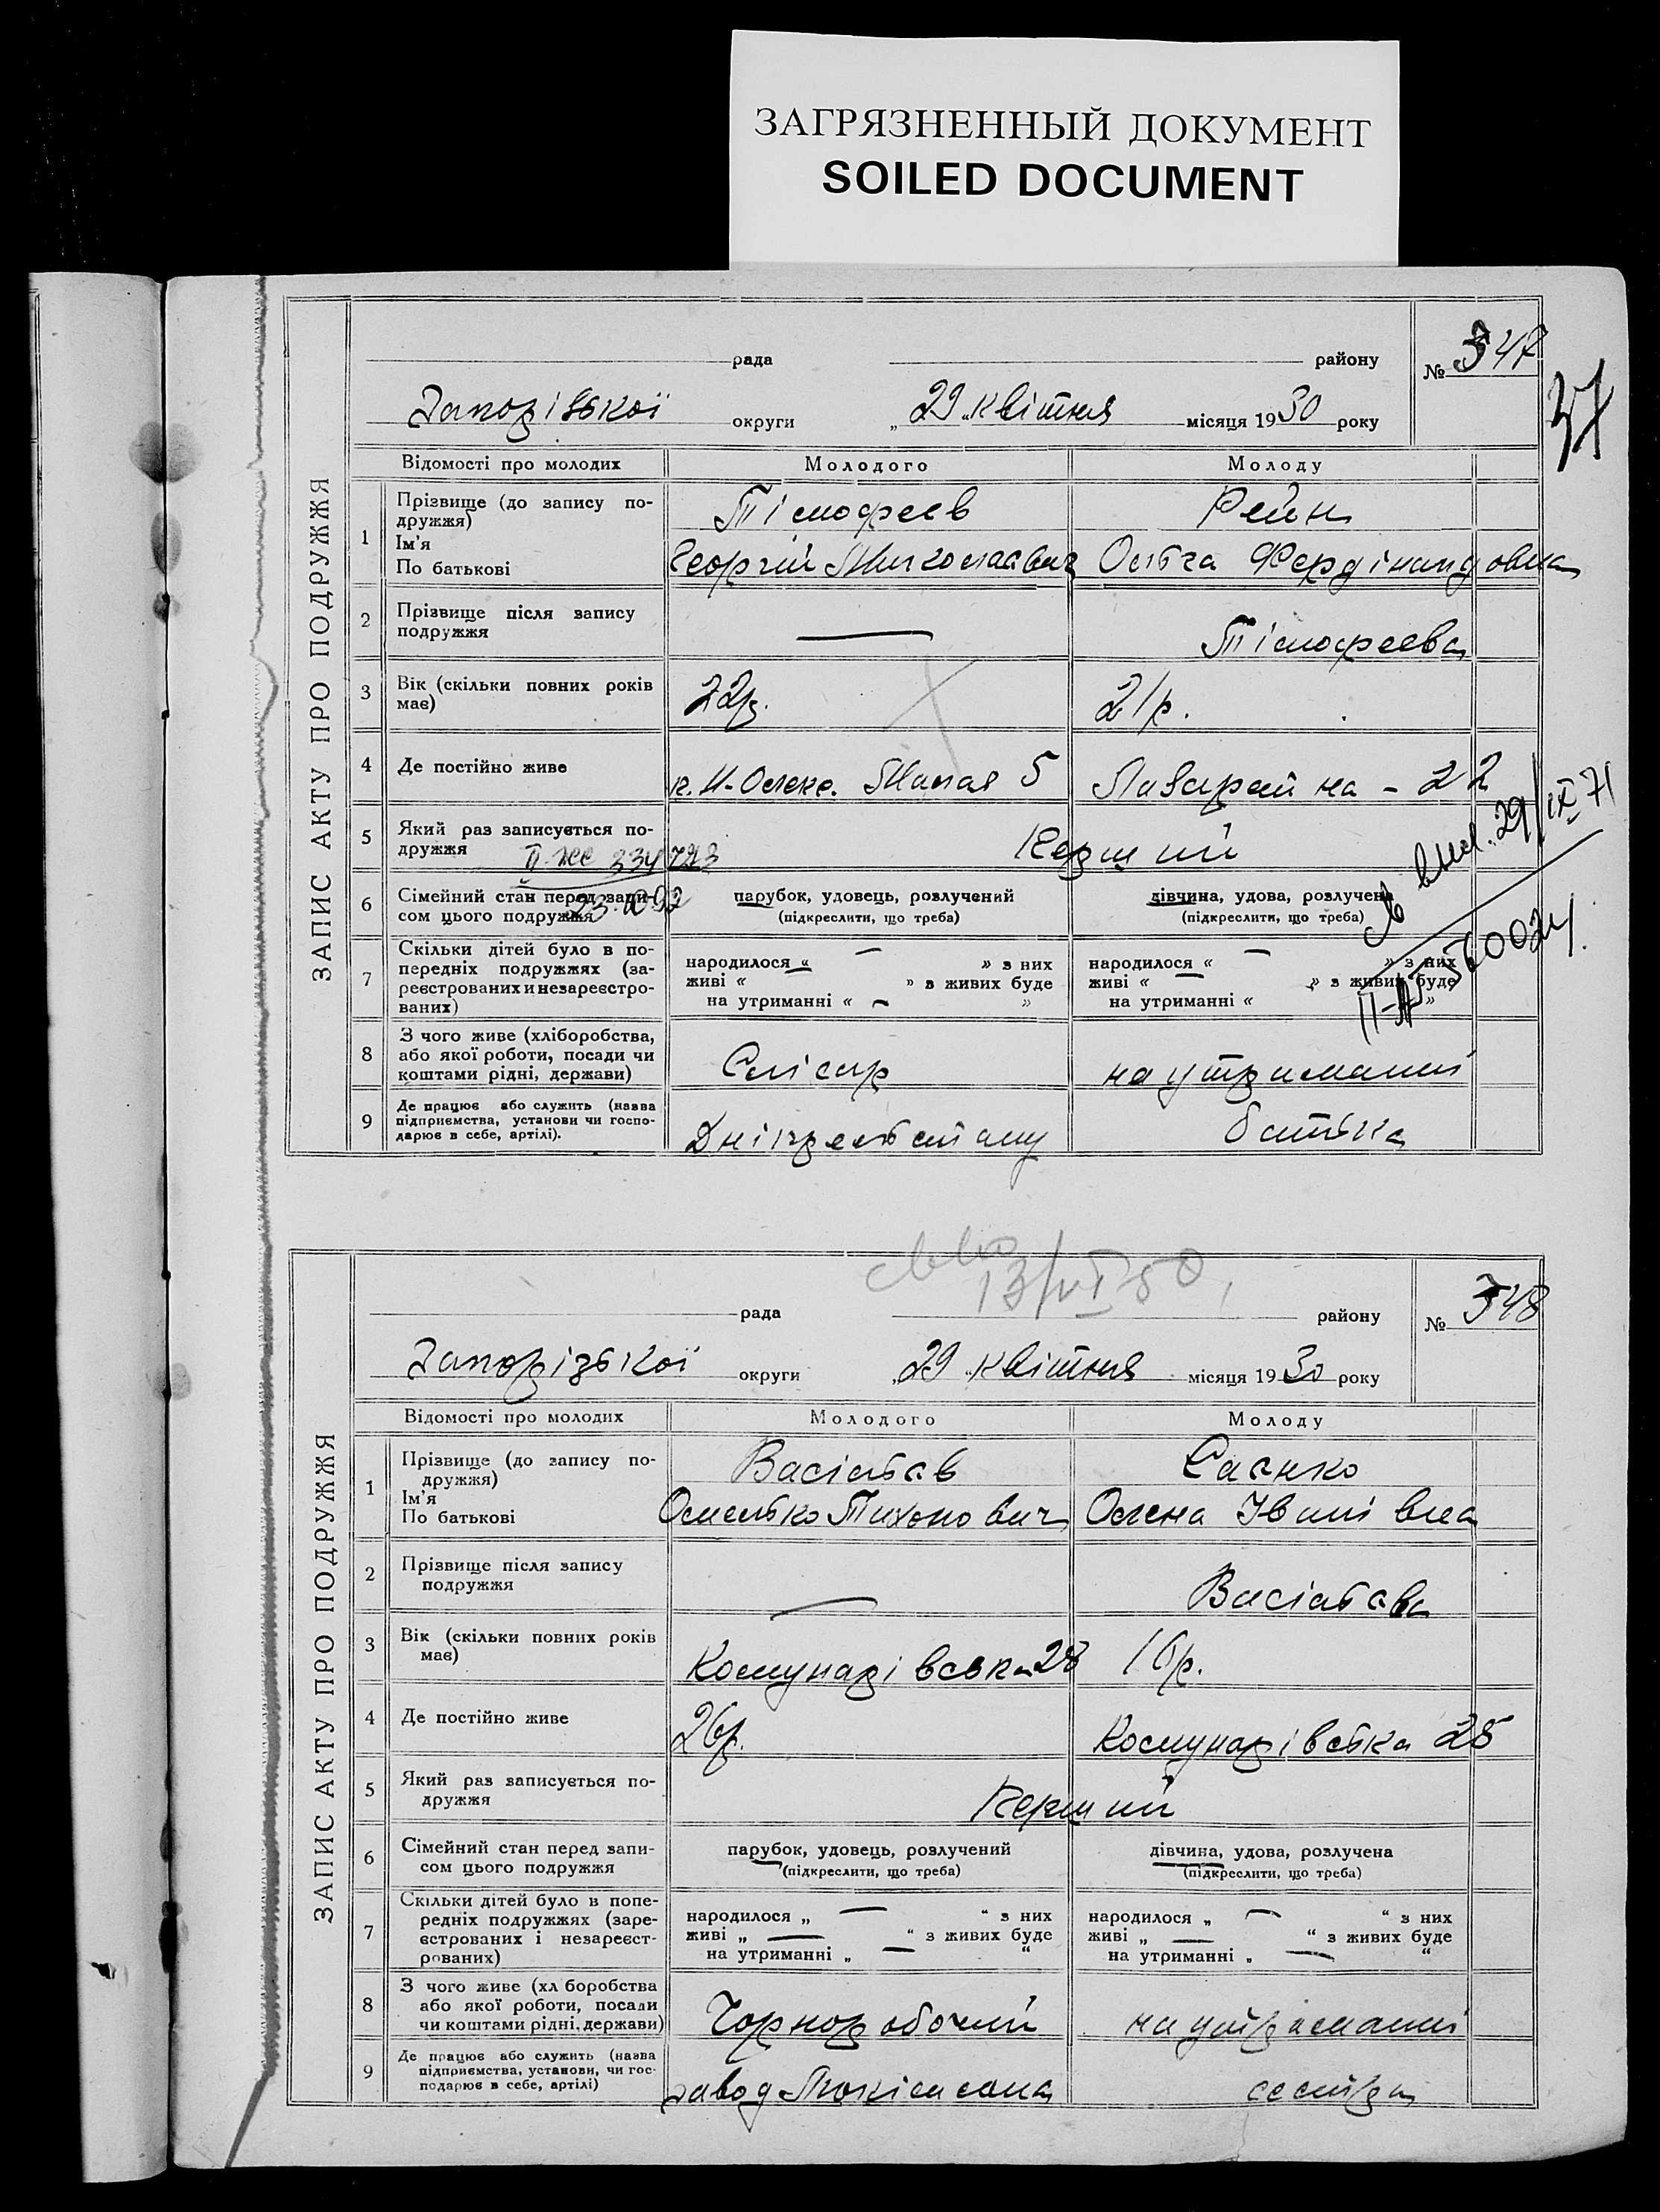 ЗАГРЯЗНЕННЫЙ ДОКУМЕНТ
SOILED DOCUMENT
ЗАПИС АКТУ ПРО ПОДРУЖЖЯ
рада району № 347
37
Запорізької округи „29 „квітня місяця 1930 року
Відомості про молодих Молодого Молоду
1 Прізвище (до запису подружжя) Тімофеєв Рейн
Ім'я
По батькові Георгій Миколаєвич Ольга Фердінандовна
2 Прізвище після запису подружжя — Тімофеєва
3 Вік (скільки повних років має) 22р. 21р.
4 Де постійно живе Малая 5 22
5 Який раз записується подружжя Перший
II-ЖС 334723
в вид. 29/IX 71
6 Сімейний стан перед записом цього подружжя парубок, удовець, розлучений дівчина, удова, розлучена
(підкреслити, що треба) (підкреслити, що треба)
7 Скільки дітей було в попередніх подружжях (зареєстрованих и незареєстрованих)
народилося « — » з них народилося « — » з них
живі « » з живих буде живі « — » з живих буде
на утриманні « — » на утриманні « »
8 З чого живе (хліборобства, або якої роботи, посади чи коштами рідні, держави) Слісар на утриманні
9 Де працює або служить (назва підприємства, установи чи господарює в себе, артілі). батька
ЗАПИС АКТУ ПРО ПОДРУЖЖЯ
13/VI 50
рада району № 348
Запорізької округи „29 „квітня місяця 1930 року
Відомості про молодих Молодого Молоду
1 Прізвище (до запису подружжя)
Ім'я
По батькові Омелько Тихонович Олена Іванівна
2 Прізвище після запису подружжя —
3 Вік (скільки повних років має) Комунарівська 28 16р.
4 Де постійно живе 26р. Комунарівська 28
5 Який раз записується подружжя Перший
6 Сімейний стан перед записом цього подружжя парубок, удовець, розлучений дівчина, удова, розлучена
(підкреслити, що треба) (підкреслити, що треба)
7 Скільки дітей було в попередніх подружжях (зареєстрованих і незареєстрованих)
народилося „ — “ з них народилося „ — “ з них
живі „ — “ з живих буде живі „ — “ з живих буде
на утриманні „ — “ на утриманні „ — “
8 З чого живе (хл боробства або якої роботи, посади чи коштами рідні, держави) Чорноробочий на утриманні
9 Де працює або служить (назва підприємства, установи, чи господарює в себе, артілі) завод сестри